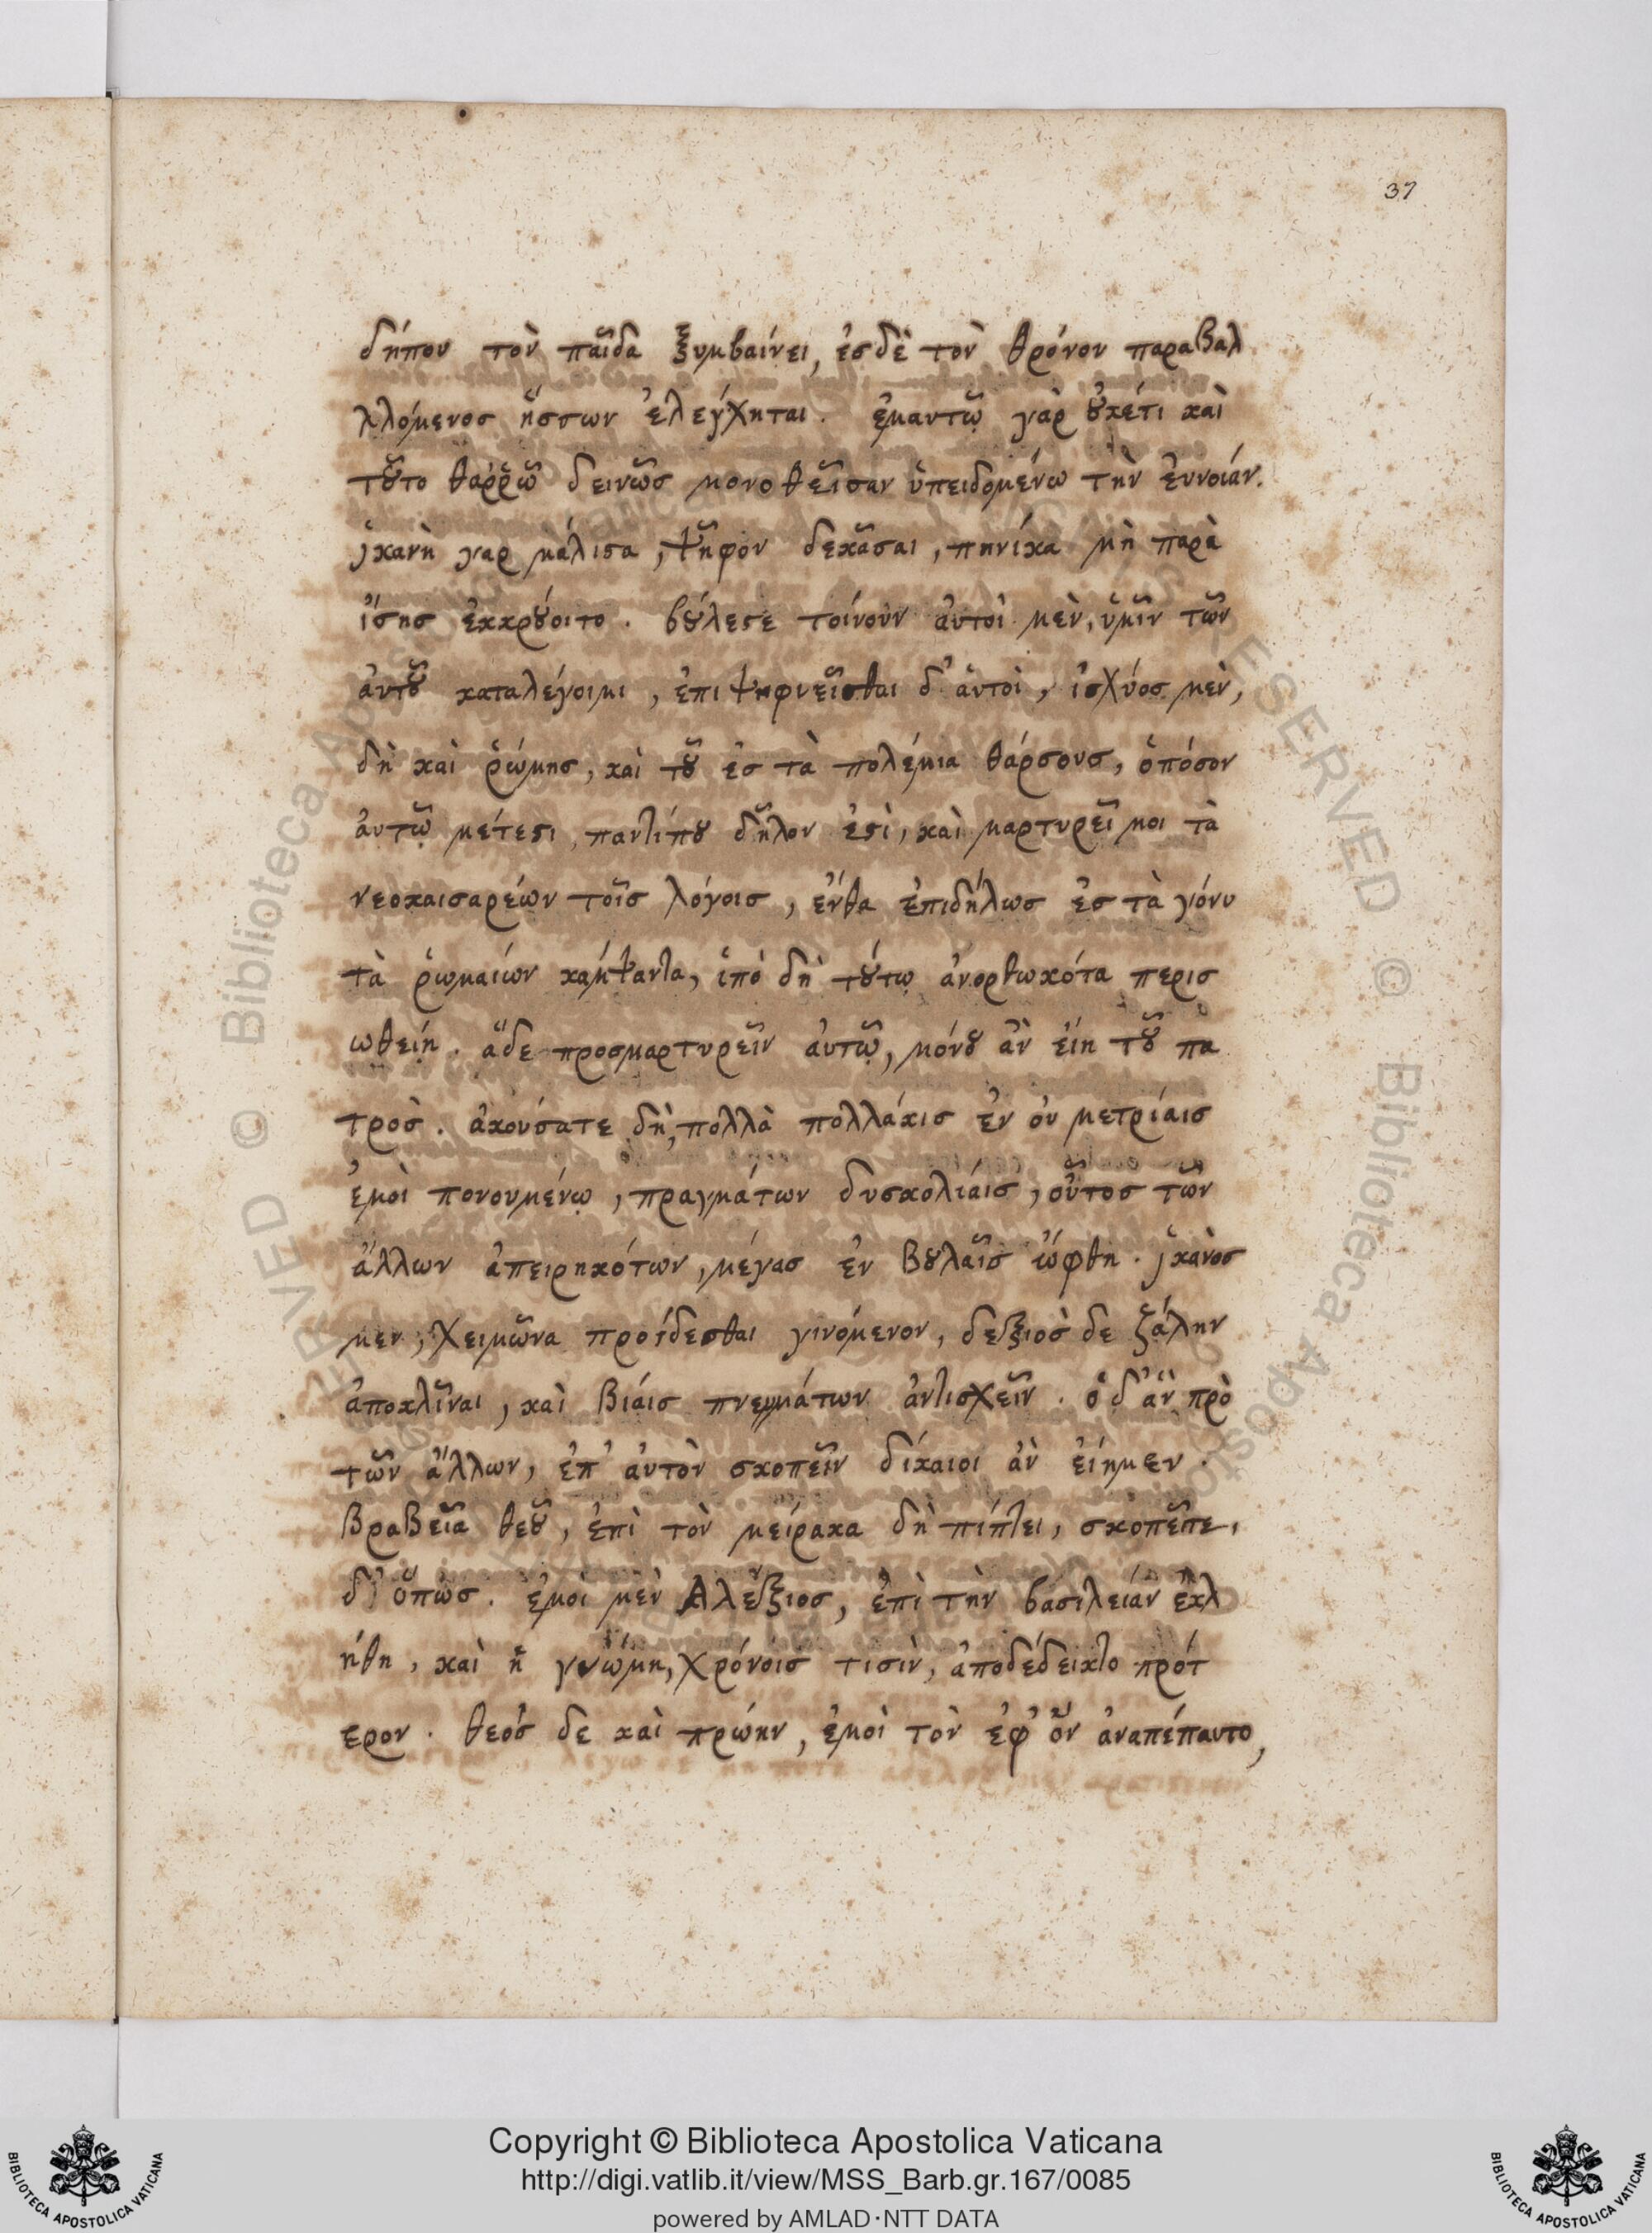 37
δήπου τὸν παῖδα ξυμβαίνει, ἐσδὲ τὸν θρόνον παραβαλ
λλόμενος ἥσσων ἐλεγχηται. ἐμαυτῷ γὰρ ȣ̓κέτι καὶ
τȣ͂το θαῤῥῶ δεινῶς μονοθεῖσαν ὑπειδομένω τὴν ἐυνοιάν.
ἱκανὴ γαρ μάλιϛα, ψῆφον δεκᾶσαι, πηνίκα μὴ παρὰ
ἴσης ἐκκρȣ́οιτο. βȣ́λεϛε τοίνουν ἀυτοὶ μὲν, ὑμῖν τῶν
ἀυτȣ͂ καταλέγοιμι, ἐπιψηφιεῖσθαι δ' ἀυτοὶ, ἰσχύος μὲν,
δὴ καὶ ῥώμης, καὶ τȣ͂ ἐς τὰ πολέμια θάρσους, ὁπόσον
ἀυτῷ μέτεϛι, παντίπȣ δῆλον ἐϛὶ, καὶ μαρτυρεῖ μοι τὰ
νεοκαισαρέων τοῖς λόγοις, ἔνθα ἐπιδήλως ἐς τὰ γόνυ
τὰ ῥωμαίων κάμψαντα, ὑπὸ δὴ τȣ́τῳ ἀνορθωκότα περισ
ωθείη. ἅδε προσμαρτυρεῖν ἀυτῷ, μόνȣ ἂν ἐίη τȣ͂ πα
τρὸς. ἀκούσατε δὴ, πολλὰ πολλάκις ἐν ὀυ μετρίαις
ἐμοὶ πονουμένῳ, πραγμάτων δυσκολίαις, οὗτος τῶν
ἄλλων ἀπειρηκότων, μέγας ἐν βȣλαῖς ὤφθη. ἱκανὸς
μεν, χειμῶνα προίδεσθαι γινόμενον, δεξιὸς δε ζάλην
ἀποκλῖναι, καὶ βίαις πνευμάτων ἀντισχεῖν. ὁ δ' ἂν πρὸ
τῶν ἄλλων, ἐπ' ἀυτὸν σκοπεῖν δίκαιοι ἂν ἐίημεν.
βραβεῖα θεȣ͂, ἐπὶ τὸν μείρακα δὴ πίπτει, σκοπεῖτε,
δ' ὅπως. ἐμοὶ μὲν Αλέξιος, ἐπὶ τὴν βασιλείάν ἐκλ
ήθη, καὶ ἡ γνώμη, χρόνοις τισὶν, ἀποδέδεικτο πρότ
ερον. θεὸς δε καὶ πρώην, ἐμοὶ τὸν ἐφ' ὃν ἀναπέπαυτο,
Copyright © Biblioteca Apostolica Vaticana
http://digi.vatlib.it/view/MSS_Barb.gr.167/0085
powered by AMLAD·NTT DATA